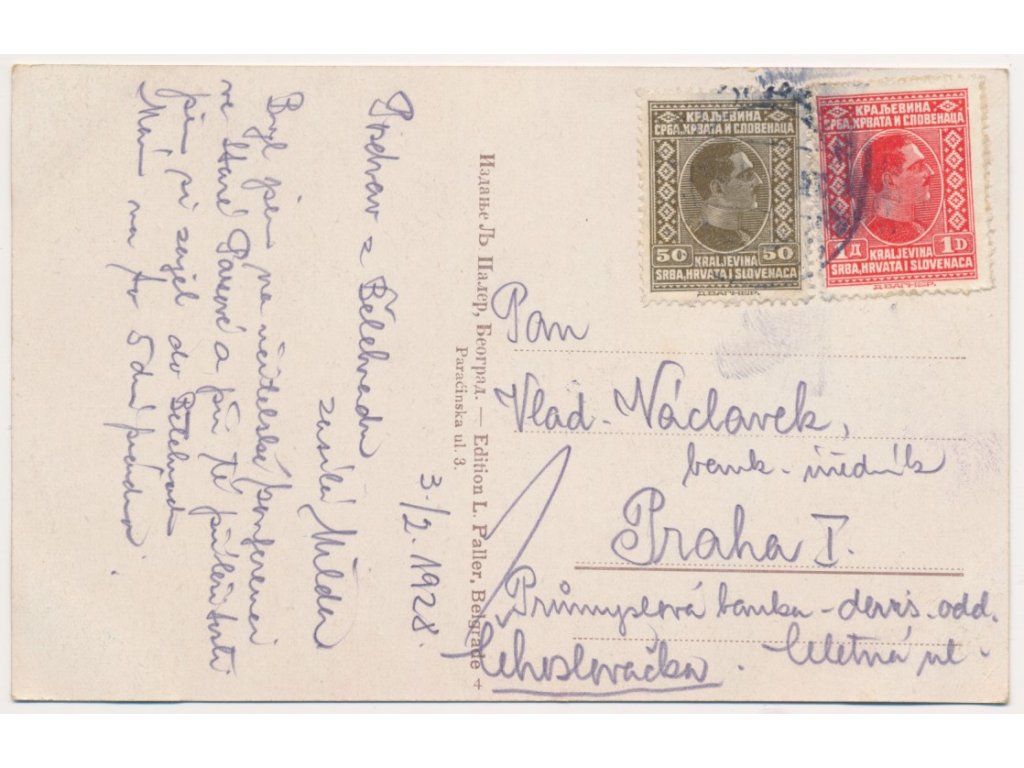 Pozdrav z Bělehradu
zasílá Milda
3./2. 1928.
Byl jsem na učitelské konferenci
ve Staré Pazově a při té příležitosti
jsem si zajel do Bělehradu
Mám na to 5 dní prázdno.
Издање Љ Палер, Београд. — Edition L. Paller, Belgrade 4
Paraćinska ul. 3.
КРАЉЕВИНА
СРБА, ХРВАТА И СЛОВЕНАЦА
50 50
KRALJEVINA
SRBA, HRVATA I SLOVENACA
Д.ВАГНЕР.
КРАЉЕВИНА
СРБА, ХРВАТА И СЛОВЕНАЦА
1Д 1D
KRALJEVINA
SRBA, HRVATA I SLOVENACA
Д.ВАГНЕР.
Pan
Vlad. Václavek,
bank. úředník
Praha I.
Průmyslová banka – devis. odd.
Čehoslovačka. Celetná ul.